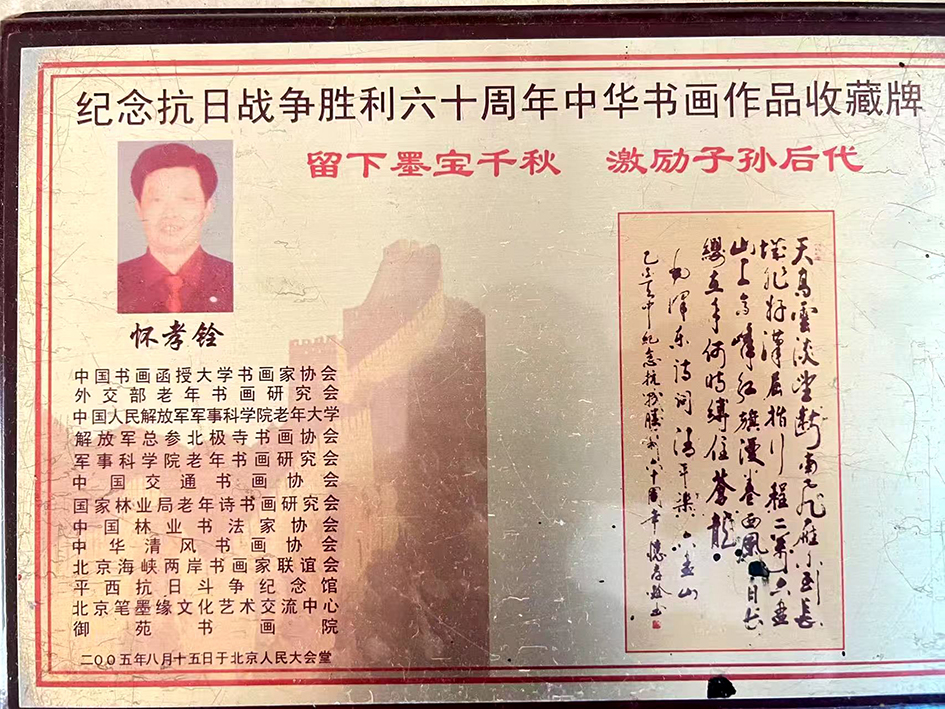 纪念抗日战争胜利六十周年中华书画作品收藏牌
留下墨宝千秋 激励子孙后代
怀孝铨
中国书画函授大学书画家协会
外交部老年书画研究会
中国人民解放军军事科学院老年大学
解放军总参北极寺书画协会
军事科学院老年书画研究会
中国交通书画协会
国家林业局老年诗书画研究会
中国林业书法家协会
中华清风书画协会
北京海峡两岸书画家联谊会
平西抗日斗争纪念馆
北京笔墨缘文化艺术交流中心
御苑书画院
二00五年八月十五日于北京人民大会堂
天高云淡望断南飞雁不到长
城非好汉屈指行程二万六盘
山上高峰红旗漫卷西风今日长
缨在手何时缚住苍龙
毛泽东诗词清平乐六盘山
乙酉年中纪念抗战胜利六十周年怀孝铨书